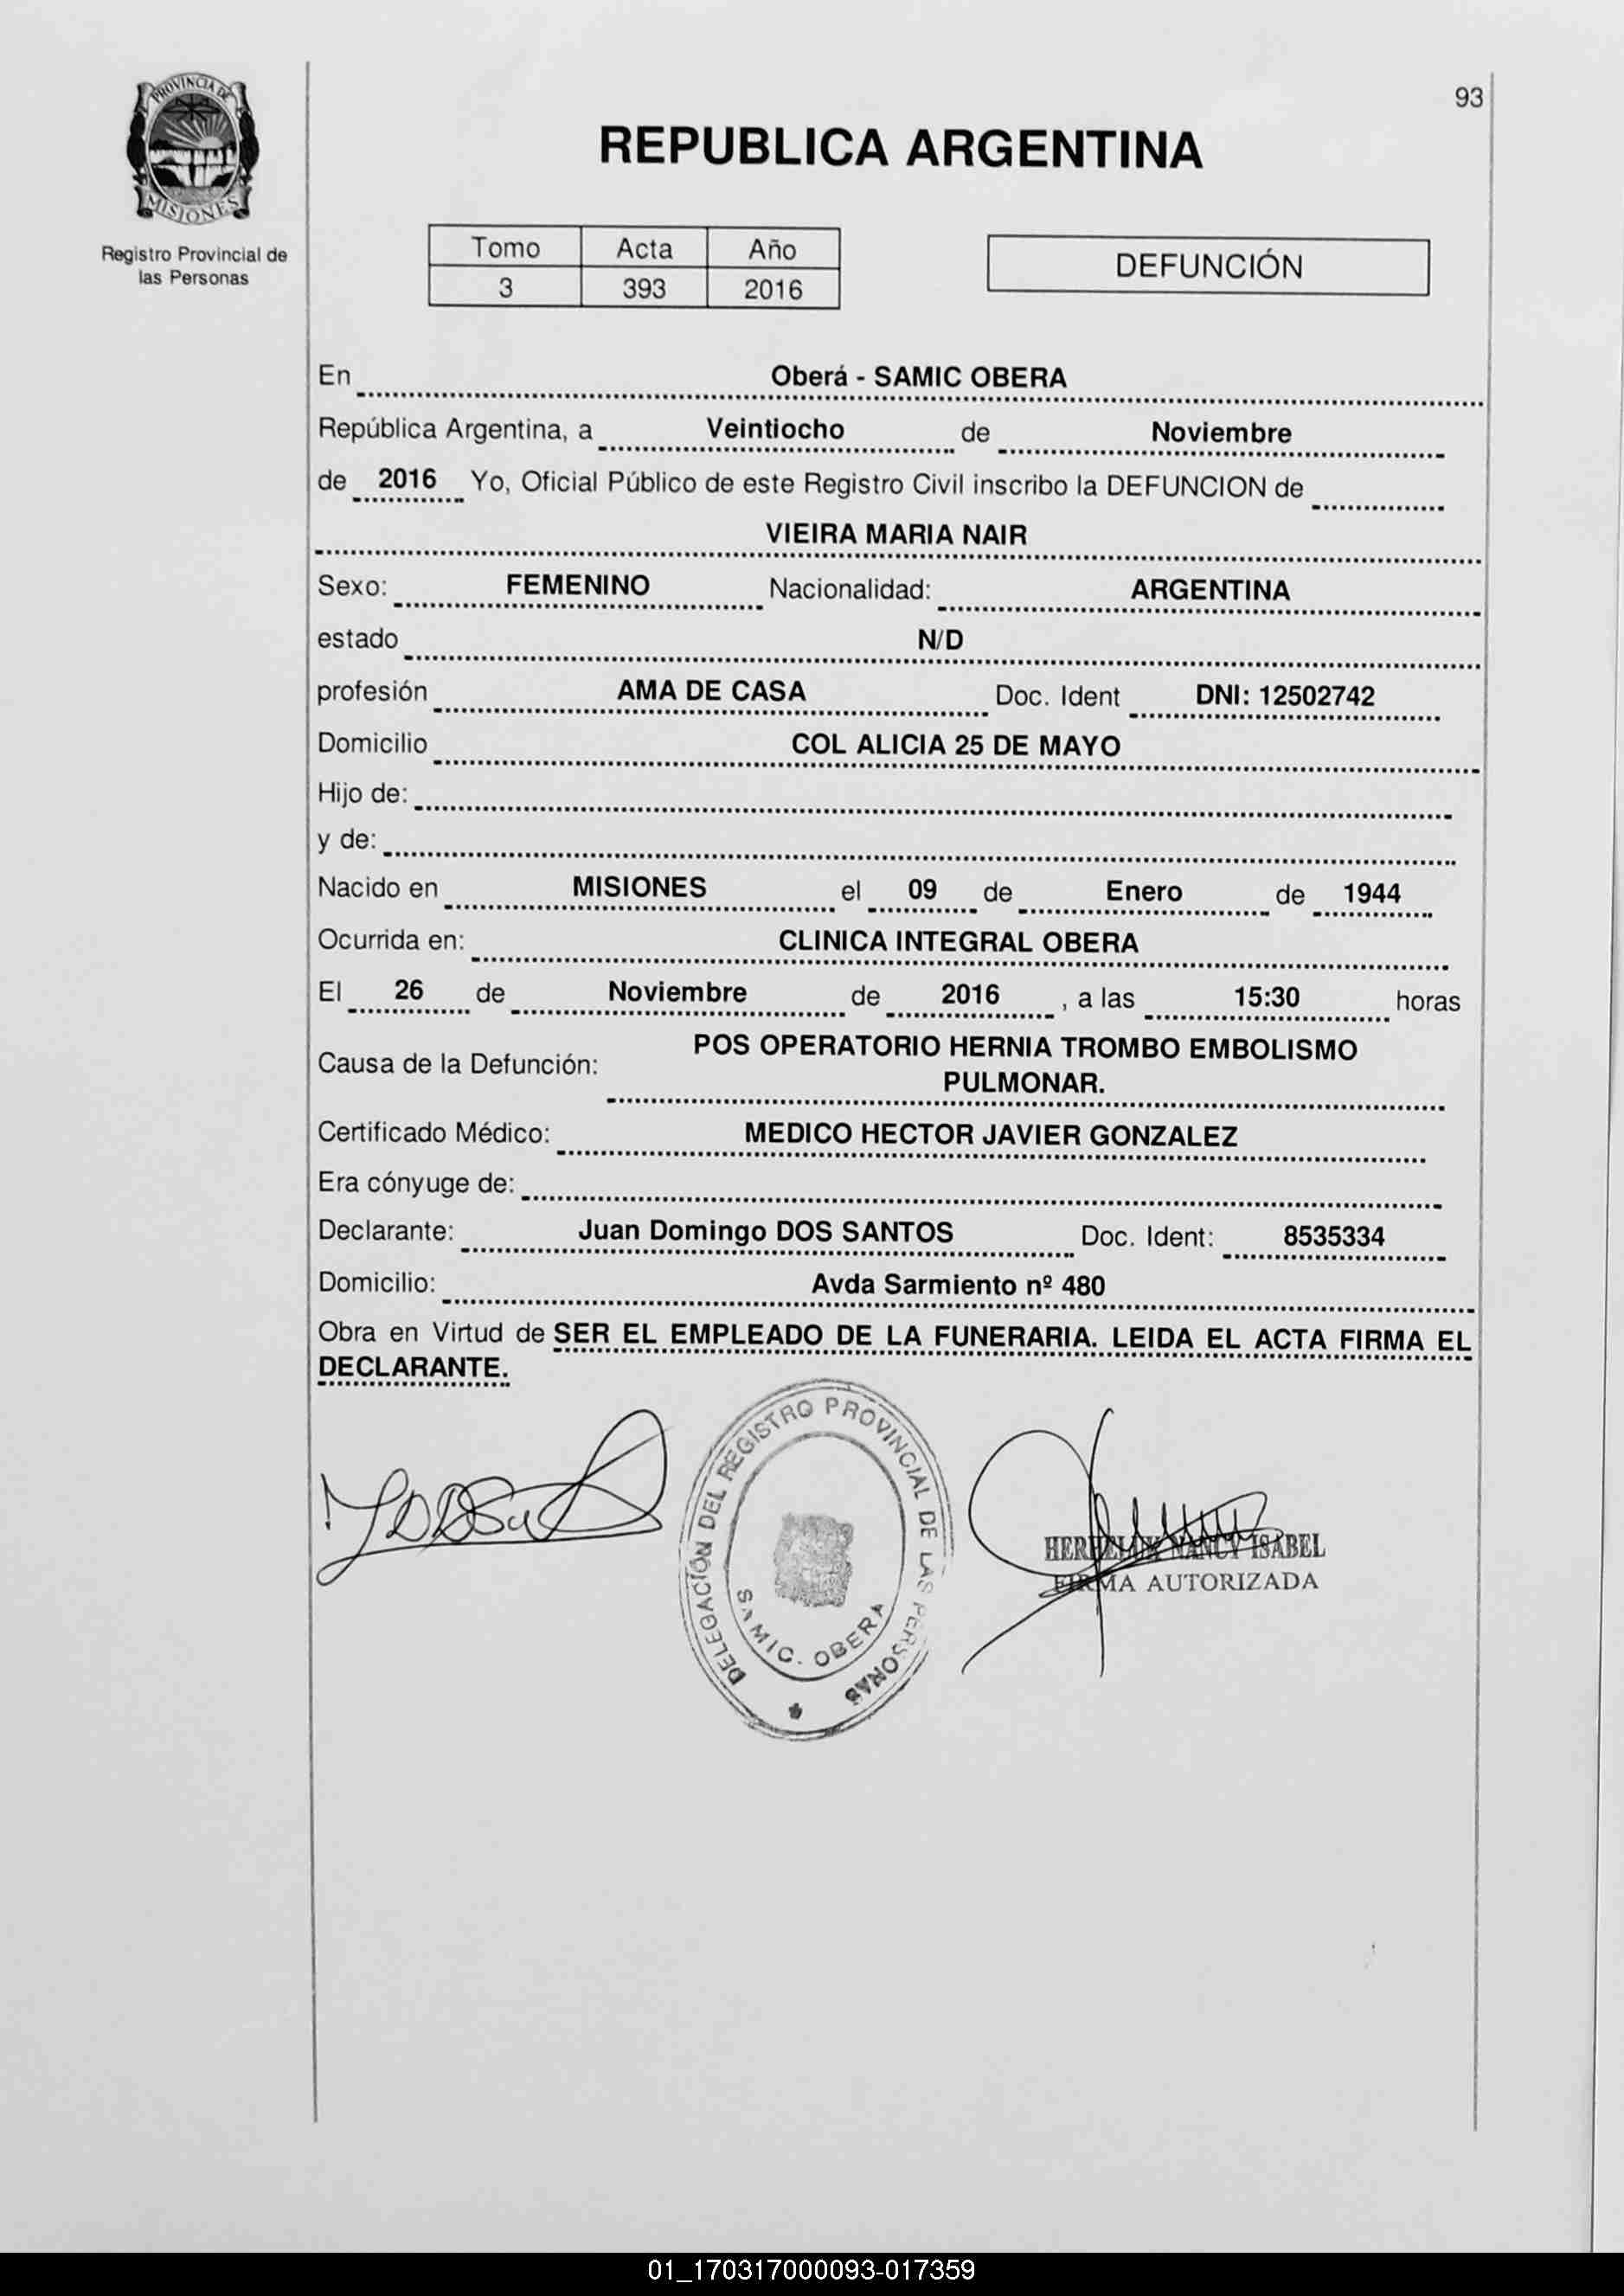 PROVINCIA DE
MISIONES
Registro Provincial de
las Personas
93
REPUBLICA ARGENTINA
Tomo Acta Año
3 393 2016
DEFUNCIÓN
En Oberá - SAMIC OBERA
República Argentina, a Veintiocho de Noviembre
de 2016 Yo, Oficial Público de este Registro Civil inscribo la DEFUNCION de
VIEIRA MARIA NAIR
Sexo: FEMENINO Nacionalidad: ARGENTINA
estado N/D
profesión AMA DE CASA Doc. Ident DNI: 12502742
Domicilio COL ALICIA 25 DE MAYO
Hijo de:
y de:
Nacido en MISIONES el 09 de Enero de 1944
Ocurrida en: CLINICA INTEGRAL OBERA
El 26 de Noviembre de 2016 , a las 15:30 horas
Causa de la Defunción: POS OPERATORIO HERNIA TROMBO EMBOLISMO
PULMONAR.
Certificado Médico: MEDICO HECTOR JAVIER GONZALEZ
Era cónyuge de:
Declarante: Juan Domingo DOS SANTOS Doc. Ident: 8535334
Domicilio: Avda Sarmiento nº 480
Obra en Virtud de SER EL EMPLEADO DE LA FUNERARIA. LEIDA EL ACTA FIRMA EL
DECLARANTE.
DELEGACIÓN DEL REGISTRO PROVINCIAL DE LAS PERSONAS
SAMIC. OBERA
NANCY ISABEL
FIRMA AUTORIZADA
01_170317000093-017359